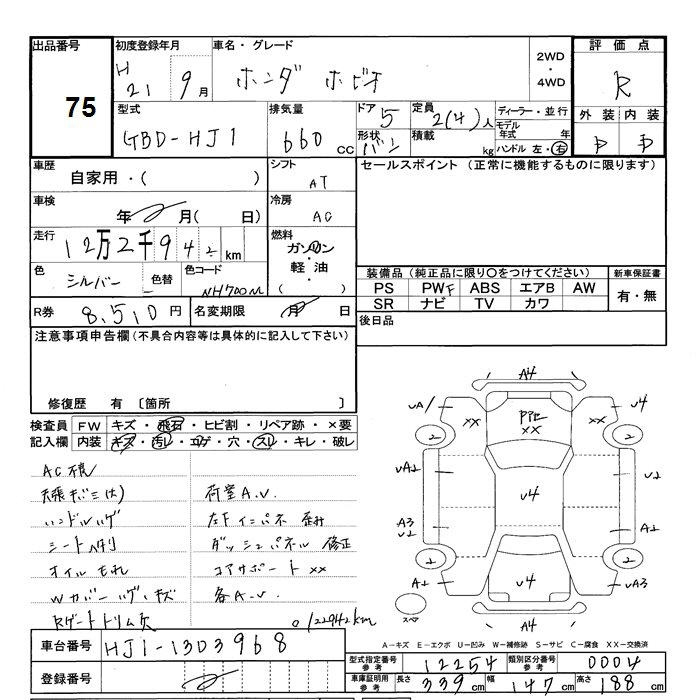 出品番号 75
初度登録年月 H 21 9月
車名・グレード ホンダ ホビオ
2WD・4WD
評価点 R
型式 GBD-HJ1
排気量 660 CC
ドア 5
形状 バン
定員 2(4)人
積載 kg
ディーラー・並行
モデル年式 年
ハンドル 左・右
外装 内装
車歴 自家用・( )
シフト AT
セールスポイント (正常に機能するものに限ります)
車検 年 月( 日)
冷房 AC
走行 12万2千942 km
燃料 ガソリン・軽油 ( )
色 シルバー 色替 色コード NH700M
装備品 (純正品に限り○をつけてください) 新車保証書
PS PWF ABS エアB AW 有・無
SR ナビ TV カワ
R券 8,510円 名変期限 月 日
後日品
注意事項申告欄 (不具合内容等は具体的に記入して下さい)
修復歴 有 〔箇所 〕
検査員 FW キズ・飛石・ヒビ割・リペア跡・×要
記入欄 内装 キズ・汚レ・コゲ・穴・スレ・キレ・破レ
AC不良
天張キズミ(大)
荷室A.V.
ハンドルハゲ
シートヘタリ
ダッシュパネル 修正
オイルもれ
コアサポート XX
Wカバーハゲ・キズ
各A.V.
Rゲートトリム欠
122942km
A4
UA1 XX XX U4
2 2
UA2 U4 U2
A3 U2 A2
2 2
A2 U4 UA3
スペア A4
A－キズ E－エクボ U－凹み W－補修跡 S－サビ C－腐食 XX－交換済
車台番号 HJ1-1303968
登録番号
型式指定番号 参考 12254 類別区分番号 参考 0004
車庫証明用 参考 長さ 339cm 幅 147cm 高さ 188cm